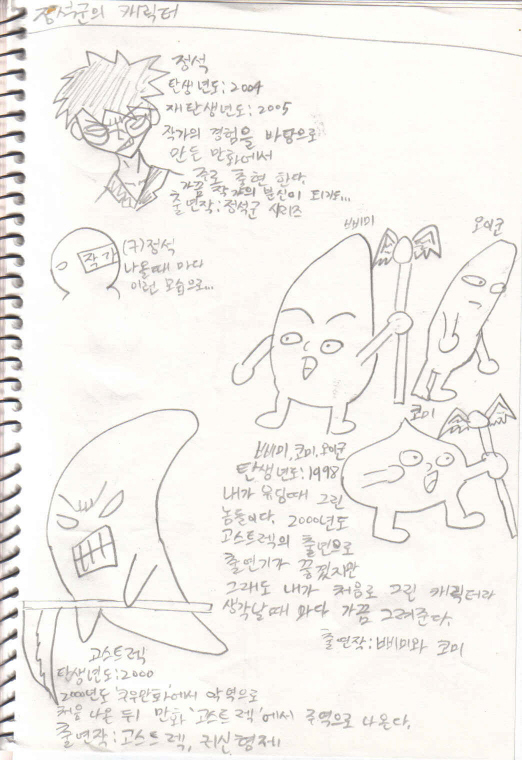 정석군의 캐릭터
정석
탄생년도:2004
재탄생년도:2005
작가의 경험을 바탕으로
만든 만화에서
주로 출현 한다.
가끔 작가의 분신이 되기도...
출연작:정석군 시리즈
작가
(구)정석
나올때 마다
이런 모습으로...
삐미
오이군
코미
삐미,코미,오이군
탄생년도:1998
내가 유딩때 그린
놈들이다. 2000년도
고스트렉의 출연으로
출연기가 끊겼지만
그래도 내가 처음로 그린 캐릭터라
생각날때 마다 가끔 그려준다.
출연작:삐미와 코미
고스트렉
탄생년도:2000
2000년도 '쿠우만화'에서 악역으로
처음 나온 뒤 만화 '고스트렉'에서 주역으로 나온다.
출연작:고스트렉, 귀신형제